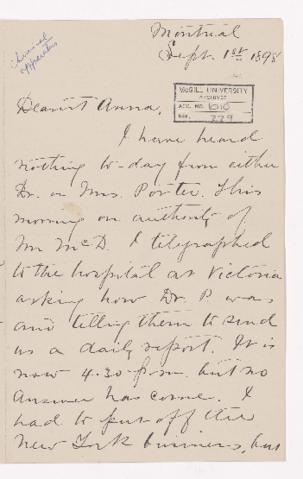 Chemical
apparatus
Montreal
Sept. 1st 1898
McGILL UNIVERSITY
ARCHIVES
ACC. NO. 1010
REF.
Dearest Anna,
I have heard
nothing to-day from either
Dr. or Mrs. Porter. This
morning on authority of
Mr McD. I telegraphed
to the hospital at Victoria
asking how Dr. P was
and telling them to send
us a daily report. It is
now 4.30 p.m. but no
answer has come. I
had to put off the
New York business, but